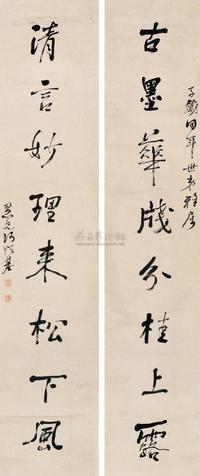 同年世弟雅屬
古墨華牋分桂上露
清言妙理來松下風
愚兄何紹基